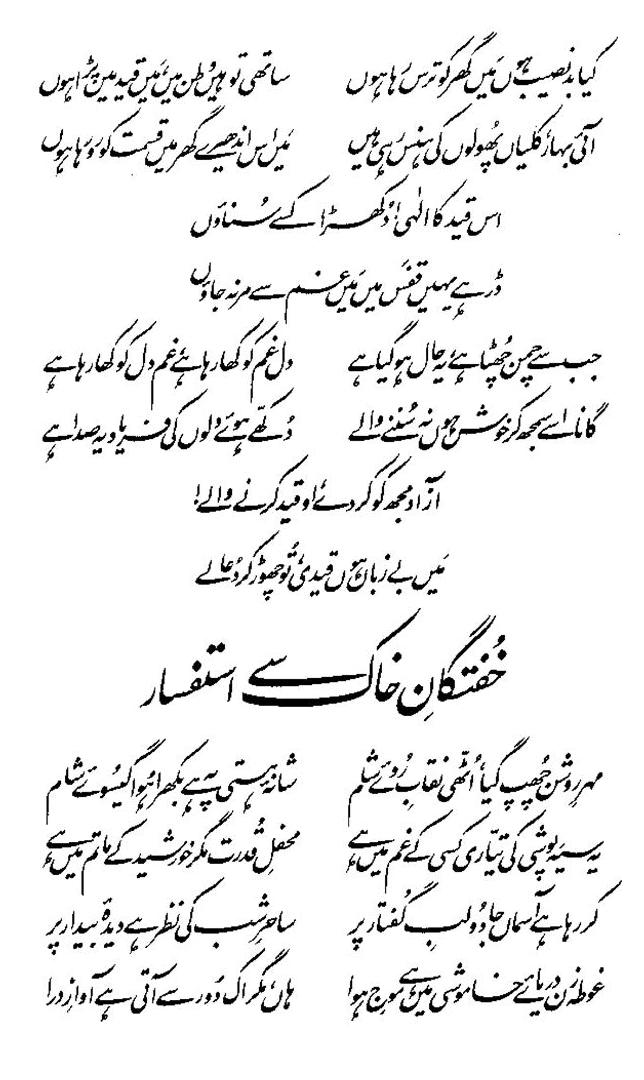 کیا بد نصیب ہوں مَیں گھر کو ترس رہا ہوں ساتھی تو ہیں وطن میں، مَیں قید میں پڑا ہوں
آئی بہار، کلیاں پھُولوں کی ہنس رہی ہیں مَیں اس اندھیرے گھر میں قسمت کو رو رہا ہوں
اس قید کا الٰہی! دُکھڑا کسے سُناؤں
ڈر ہے یہیں قفَس میں مَیں غم سے مر نہ جاؤں
جب سے چمن چھُٹا ہے، یہ حال ہو گیا ہے دل غم کو کھا رہا ہے، غم دل کو کھا رہا ہے
گانا اسے سمجھ کر خوش ہوں نہ سُننے والے دُکھّے ہوئے دلوں کی فریاد یہ صدا ہے
آزاد مجھ کو کر دے، او قید کرنے والے!
مَیں بے زباں ہوں قیدی، تُو چھوڑ کر دُعا لے
خُفتگانِ خاک سے استفسار
مہرِ روشن چھُپ گیا، اُٹھّی نقابِ رُوئے شام شانۂ ہستی پہ ہے بکھرا ہُوا گیسُوئے شام
یہ سیَہ پوشی کی تیّاری کسی کے غم میں ہے محفلِ قُدرت مگر خورشید کے ماتم میں ہے
کر رہا ہے آسماں جادُو لبِ گُفتار پر ساحرِ شب کی نظر ہے دیدۂ بیدار پر
غوطہ زن دریائے خاموشی میں ہے موجِ ہوا ہاں، مگر اک دُور سے آتی ہے آوازِ درا